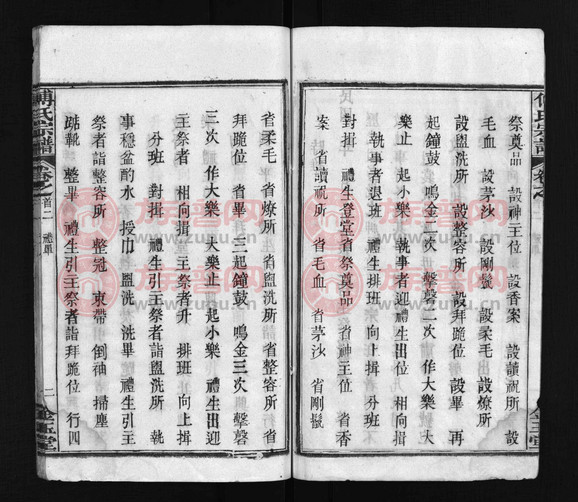 祭奠品 設神主位 設香案 設讀祝所 設
毛血 設茅沙 設剛鬛 設柔毛出 設燎所
設盥洗所 設整容所 設拜跪位 設畢 再
起鐘鼓 鳴金二次 擊磬二次 作大樂 大
樂止 起小樂 執事者迎 禮生出位 相向揖
執事者退班 禮生排班 向上揖 分班
對揖 禮生登堂省祭奠品 省神主位 省香
案 省讀祝所 省毛血 省茅沙 省剛鬛
省柔毛 省燎所 省盥洗所 省整容所 省
拜跪位 省畢 三起鐘鼓 鳴金三次 擊磬
三次 作大樂 大樂止 起小樂 禮生出迎
主祭者 相向揖 主祭者升 排班 向上揖
分班 對揖 禮生引主祭者詣盥洗所 執
事穏盆酌水 授巾 盥洗 洗畢 禮生引主
祭者詣整容所 整冠 束帶 倒袖 掃塵
踮靴 整畢 禮生引主祭者詣拜跪位 行四
傅氏宗譜
卷之首二 禮單
二
金玉堂
傅氏宗譜
卷之
金玉堂
族譜网
www.zupu.cn
族譜网
www.zupu.cn
族譜网
www.zupu.cn
族譜网
www.zupu.cn